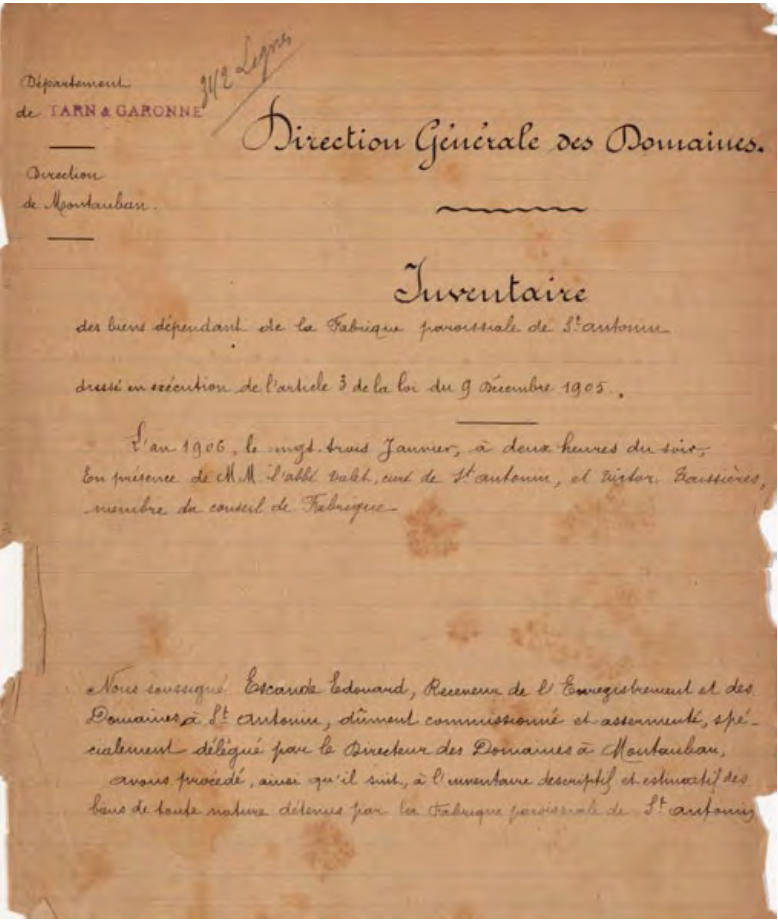 Département
de TARN & GARONNE
342 Lignes
Direction
de Montauban.
Direction Générale des Domaines.
Inventaire
des biens dépendant de la Fabrique paroissiale de St antonin
dressé en exécution de l'article 3 de la loi du 9 Décembre 1905.
L'an 1906, le vingt-trois Janvier, à deux heures du soir,
En présence de MM. l'abbé Valet, curé de St antonin, et Victor
membre du conseil de Fabrique
Nous soussigné Escande Edouard, Receveur de l'Enregistrement et des
Domaines à St Antonin, dûment commissionné et assermenté, spé-
cialement délégué par le Directeur des Domaines à Montauban,
avons procédé, ainsi qu'il suit, à l'inventaire descriptif et estimatif des
biens de toute nature détenus par la Fabrique paroissiale de St antonin